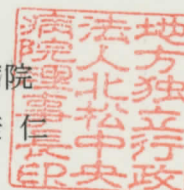 院
仁
地方独立行政
法人北松中央
病院理事長印